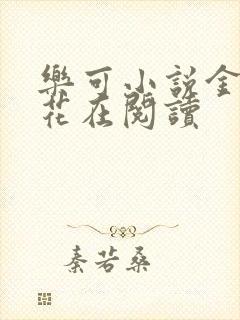 樂可小说金
花在閱讀
秦若桑